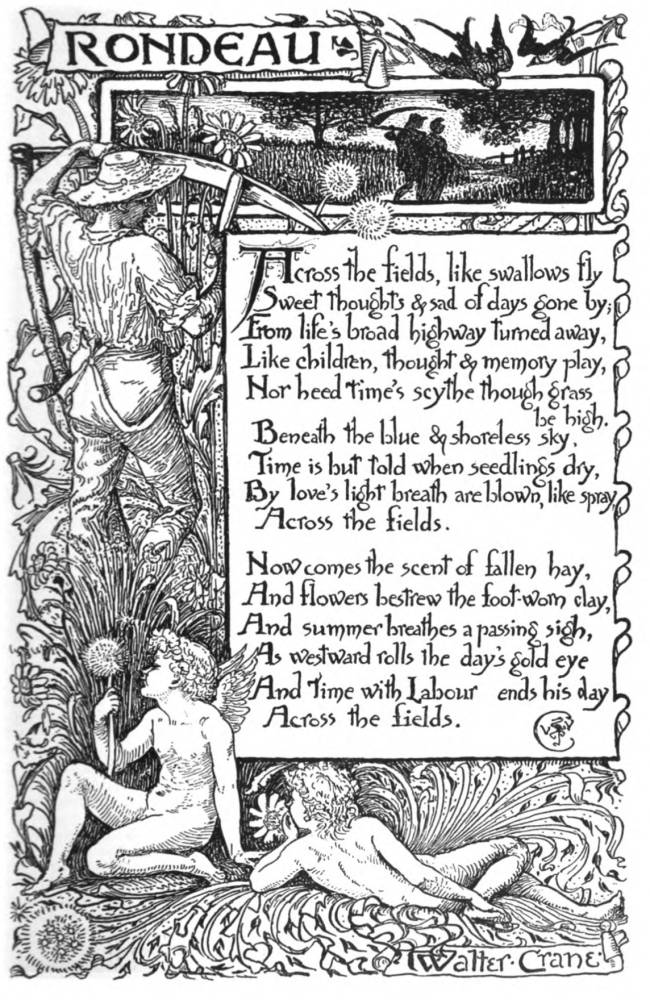 RONDEAU
Across the fields, like swallows fly
Sweet thoughts & sad of days gone by;
From life's broad highway turned away,
Like children, thought & memory play,
Nor heed Time's scythe though grass
be high.
Beneath the blue & shoreless sky,
Time is but told when seedlings dry,
By love's light breath are blown, like spray,
Across the fields.
Now comes the scent of fallen hay,
And flowers bestrew the foot-worn clay,
And summer breathes a passing sigh,
As westward rolls the day's gold eye
And Time with Labour ends his day
Across the fields.
Walter · Crane